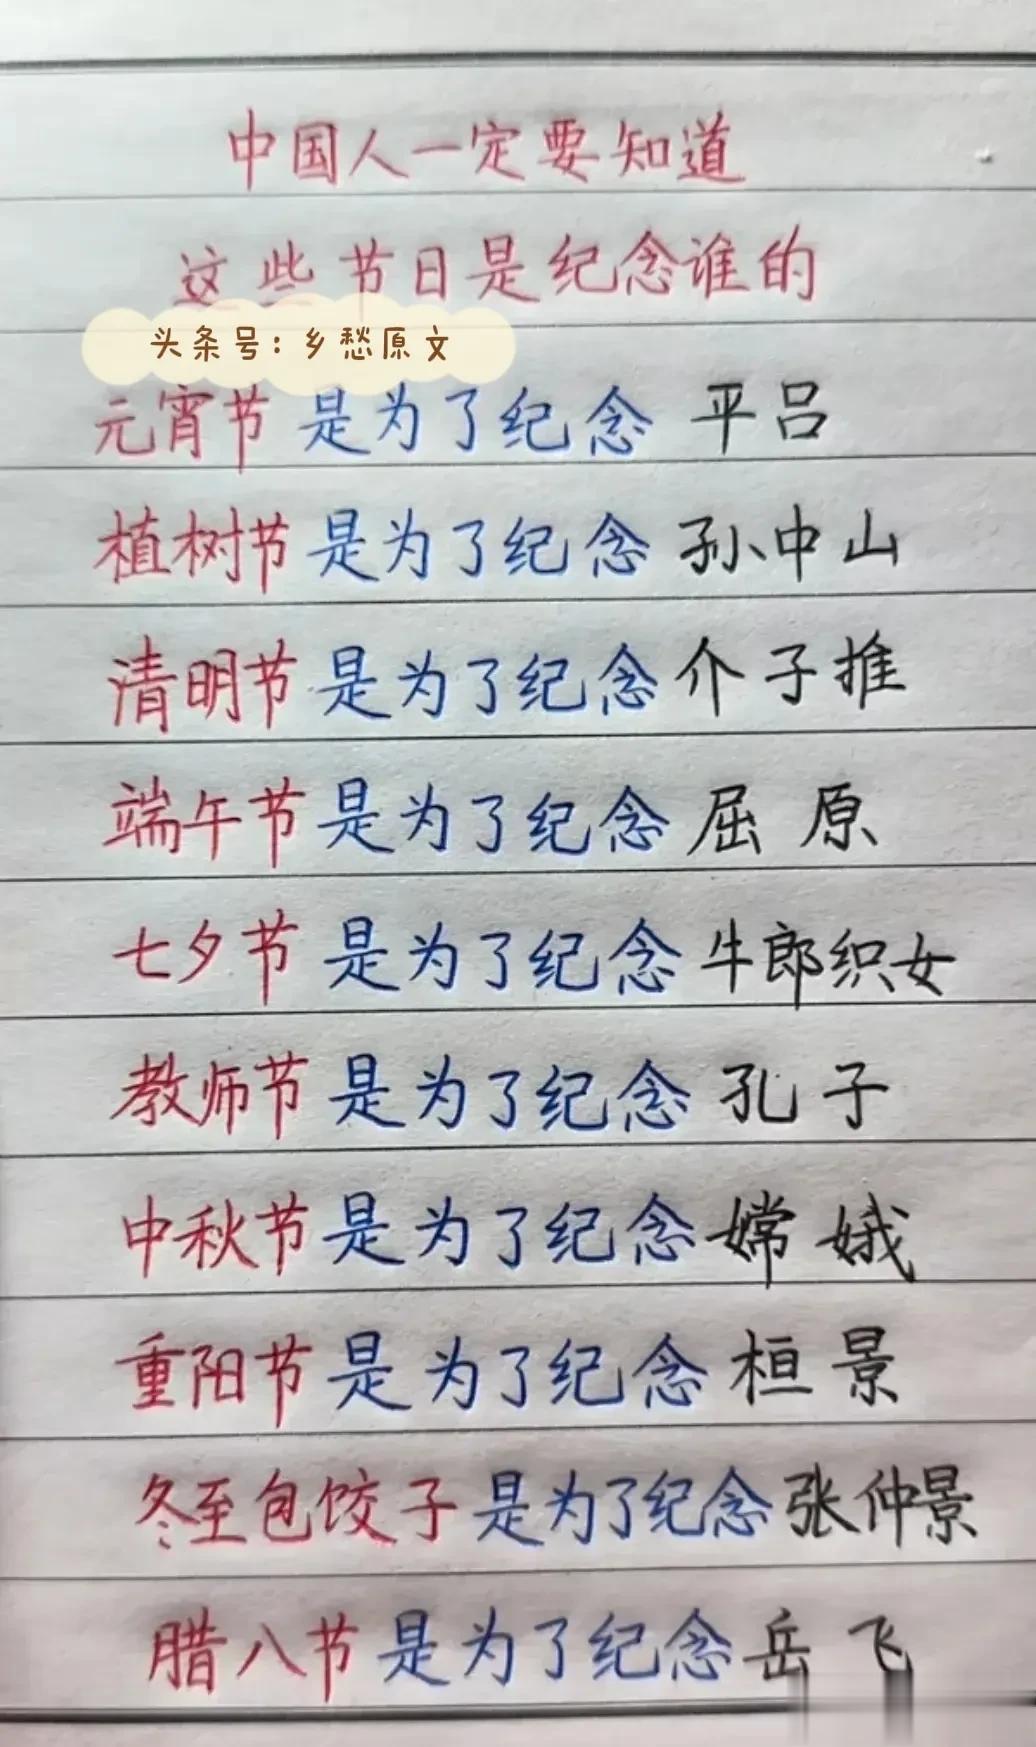 中国人一定要知道
这些节日是纪念谁的
头条号:乡愁原文
元宵节是为了纪念 平吕
植树节是为了纪念 孙中山
清明节是为了纪念 介子推
端午节是为了纪念 屈原
七夕节是为了纪念 牛郎织女
教师节是为了纪念 孔子
中秋节是为了纪念 嫦娥
重阳节是为了纪念 桓景
冬至包饺子是为了纪念 张仲景
腊八节是为了纪念 岳飞